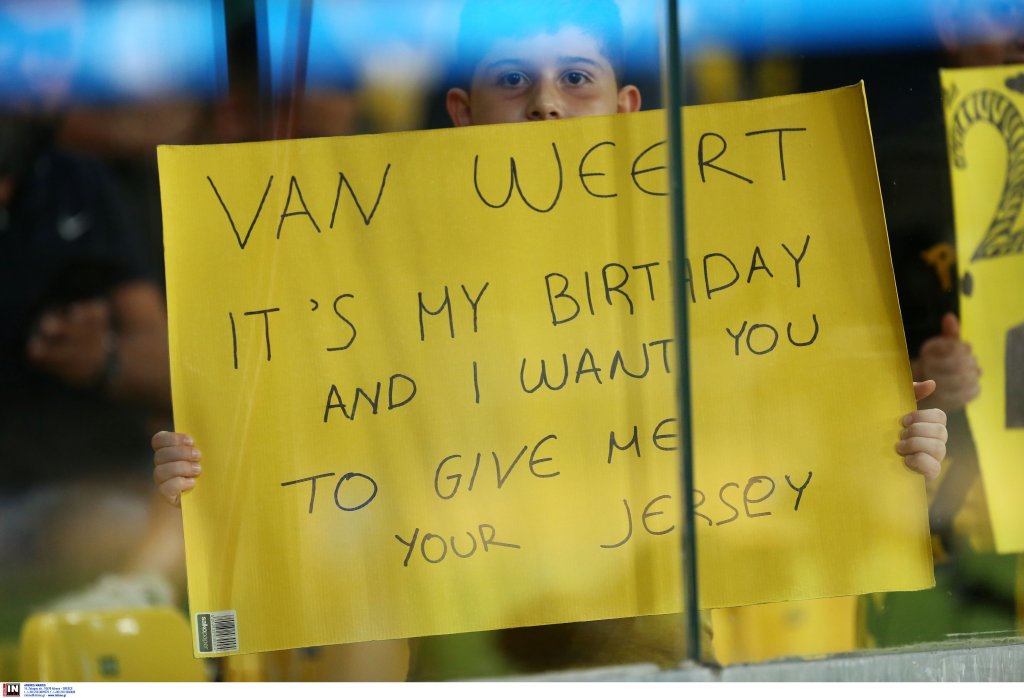 VAN WEERT
IT'S MY BIRTHDAY
AND I WANT YOU
TO GIVE ME
YOUR JERSEY
IN